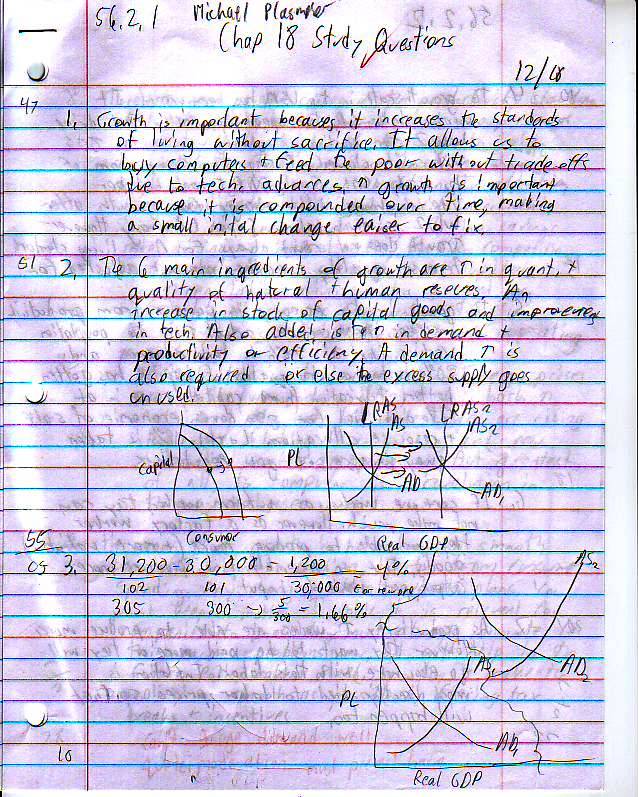 56.2.1 Michael Plasmeier
Chap 18 Study Questions
12/18
47
1. Growth is important because it increases the standards
of living without sacrifice. It allows us to
buy computers + feed the poor without trade offs
due to tech. advances. growth is important
because it is compounded over time, making
a small inital change eaiser to fix.
51 2. The 6 main ingredients of growth are ↑ in quant. +
quality of natural + human reserves. An
increase in stock of capital goods and improvements
in tech. Also added is ↑ in demand +
productivity or efficiency. A demand ↑ is
also required or else the excess supply goes
unused.
LRAS LRAS2
AS AS2
Capital PL
AD AD1
Consumer Real GDP
55
3. 31,200 - 30,000 = 1,200 = 4%
102 101 30,000
305 300 → 5/300 = 1.66%
AS2
AD2
AS1
PL
AD1
10
Real GDP